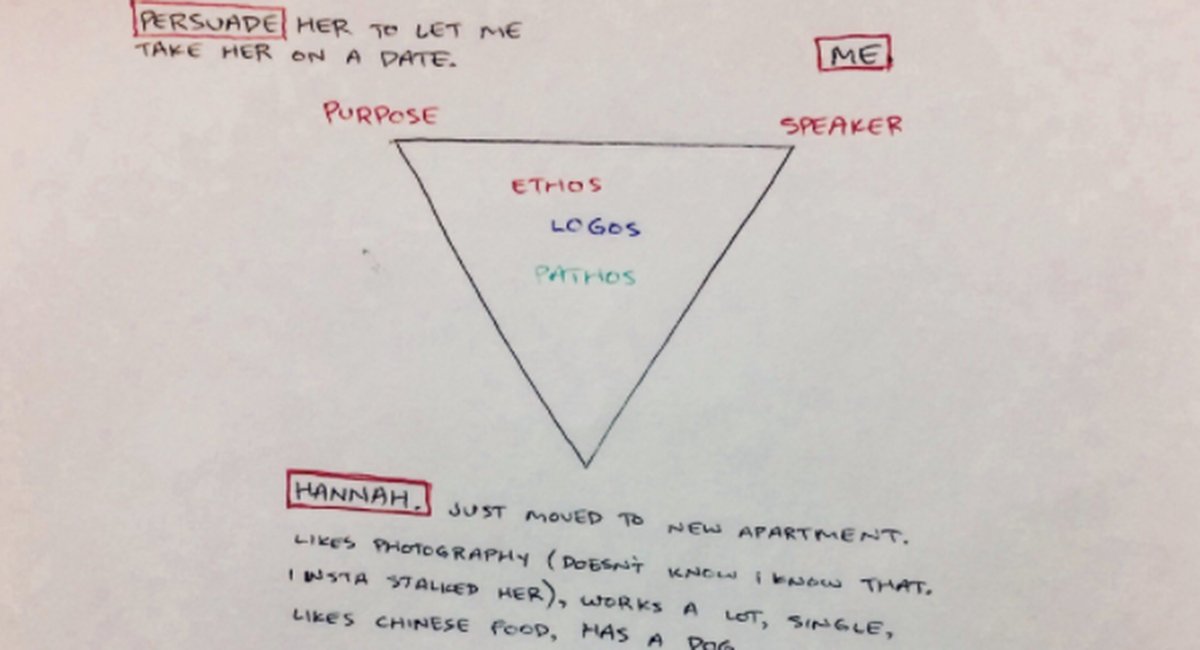 PERSUADE HER TO LET ME
TAKE HER ON A DATE.
ME
PURPOSE
SPEAKER
ETHOS
LOGOS
PATHOS
HANNAH. JUST MOVED TO NEW APARTMENT.
LIKES PHOTOGRAPHY (DOESN'T KNOW I KNOW THAT.
I INSTA STALKED HER), WORKS A LOT, SINGLE,
LIKES CHINESE FOOD, HAS A DOG